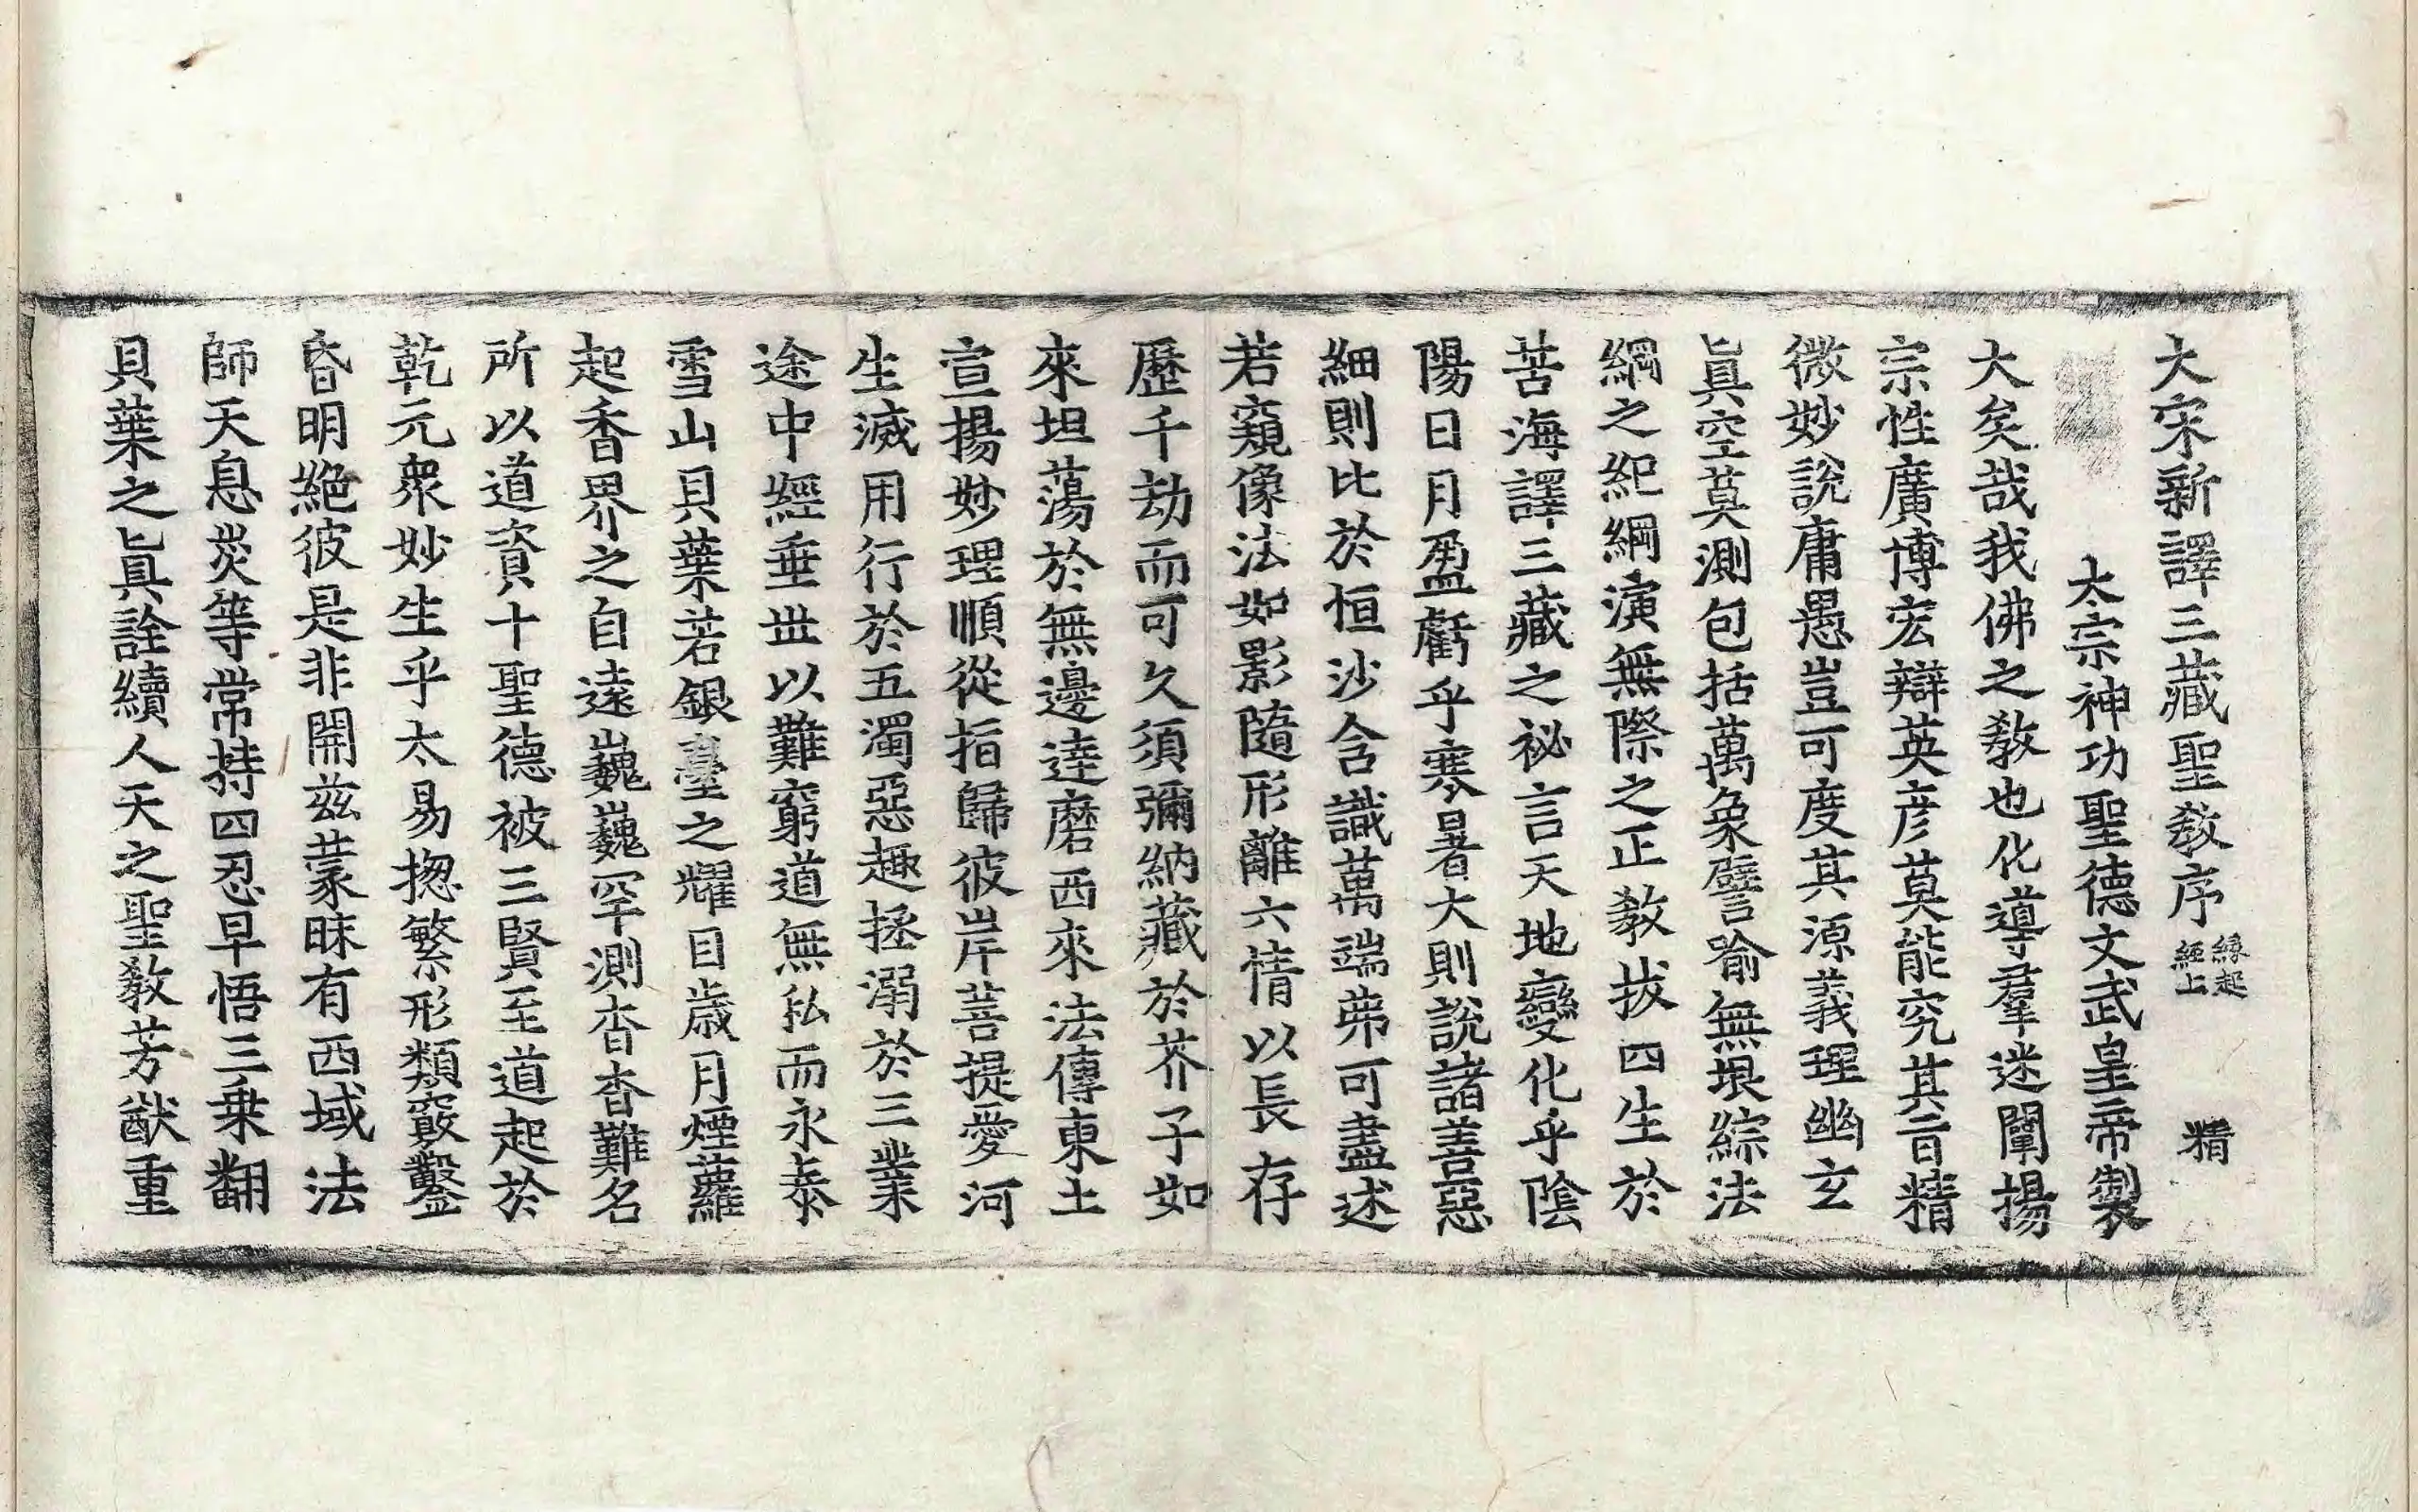 大宋新譯三藏聖教序 緣起經上 精
太宗神功聖德文武皇帝製
大矣哉我佛之教也化導羣迷闡揚
宗性廣博宏辯英彦莫能究其旨精
微妙說庸愚豈可度其源義理幽玄
眞空莫測包括萬象譬喻無垠綜法
綱之紀綱演無際之正教拔四生於
苦海譯三藏之祕言天地變化乎陰
陽日月盈虧乎寒暑大則說諸善惡
細則比於恒沙含識萬端弗可盡述
若窺像法如影隨形離六情以長存
歷千劫而可久須彌納藏於芥子如
來坦蕩於無邊達磨西來法傳東土
宣揚妙理順從指歸彼岸菩提愛河
生滅用行於五濁惡趣拯溺於三業
途中經垂世以難窮道無私而永泰
雪山貝葉若銀臺之耀目歲月煙蘿
起香界之自遠巍巍罕測杳杳難名
所以道資十聖德被三賢至道起於
乾元衆妙生乎太易揔繁形類竅鑿
昏明絕彼是非開兹蒙昧有西域法
師天息災等常持四忍早悟三乗翻
貝葉之眞詮續人天之聖教芳猷重